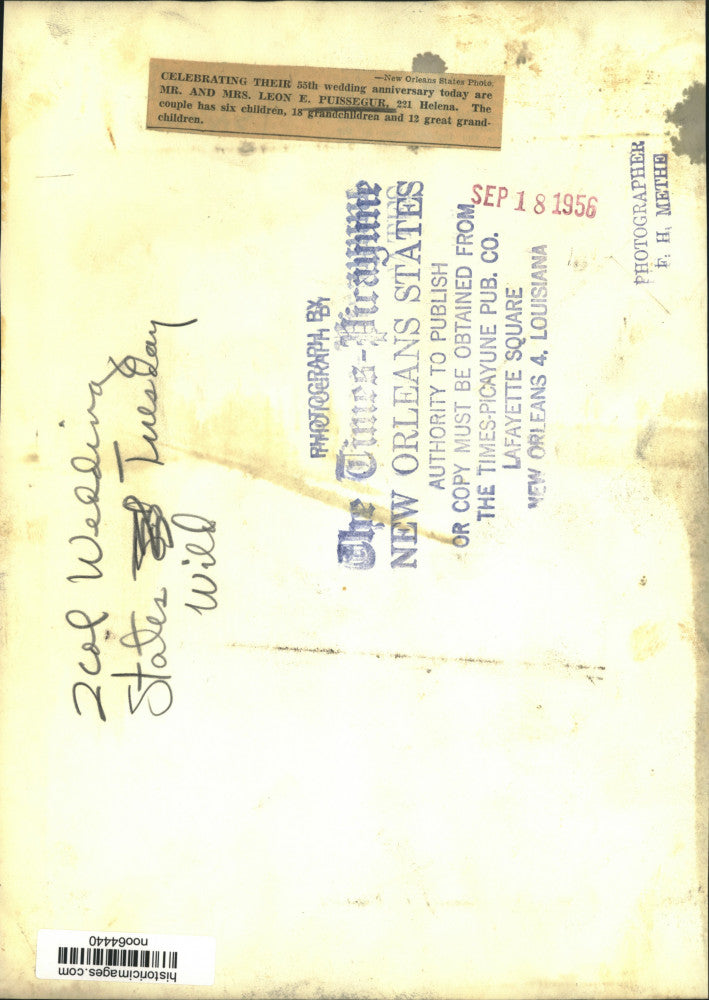 —New Orleans States Photo.
CELEBRATING THEIR 55th wedding anniversary today are
MR. AND MRS. LEON E. PUISSEGUR, 221 Helena. The
couple has six children, 18 grandchildren and 12 great grand-
children.
SEP 18 1956
PHOTOGRAPHER
F. H. METHE
PHOTOGRAPH BY
The Times-Picayune
NEW ORLEANS STATES
AUTHORITY TO PUBLISH
OR COPY MUST BE OBTAINED FROM
THE TIMES-PICAYUNE PUB. CO.
LAFAYETTE SQUARE
NEW ORLEANS 4, LOUISIANA
2 col Wedding
States Tuesday
Will
historicimages.com
noo64440